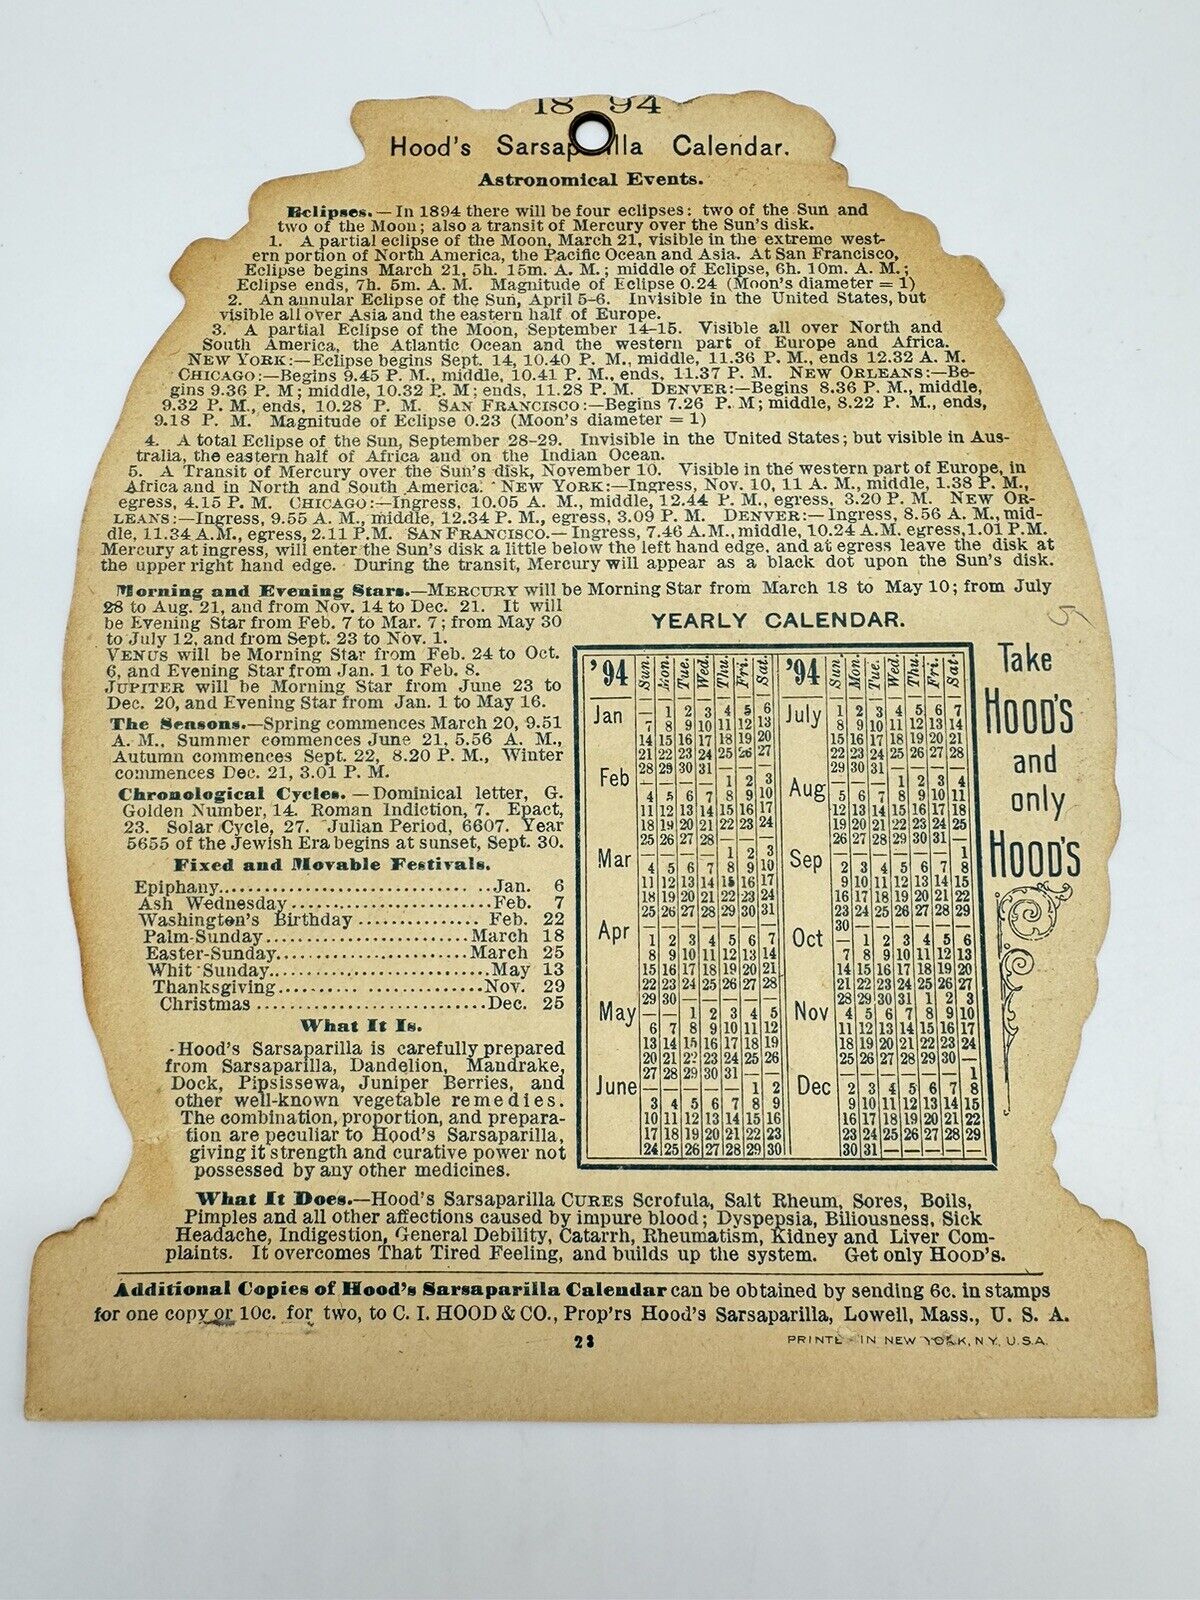 18 94
Hood's Sarsaparilla Calendar.
Astronomical Events.
Eclipses.—In 1894 there will be four eclipses: two of the Sun and
two of the Moon; also a transit of Mercury over the Sun's disk.
1. A partial eclipse of the Moon, March 21, visible in the extreme west-
ern portion of North America, the Pacific Ocean and Asia. At San Francisco,
Eclipse begins March 21, 5h. 15m. A. M.; middle of Eclipse, 6h. 10m. A. M.;
Eclipse ends, 7h. 5m. A. M. Magnitude of Eclipse 0.24 (Moon's diameter = 1)
2. An annular Eclipse of the Sun, April 5-6. Invisible in the United States, but
visible all over Asia and the eastern half of Europe.
3. A partial Eclipse of the Moon, September 14-15. Visible all over North and
South America, the Atlantic Ocean and the western part of Europe and Africa.
NEW YORK:—Eclipse begins Sept. 14, 10.40 P. M., middle, 11.36 P. M., ends 12.32 A. M.
CHICAGO:—Begins 9.45 P. M., middle, 10.41 P. M., ends, 11.37 P. M. NEW ORLEANS:—Be-
gins 9.36 P. M; middle, 10.32 P. M; ends, 11.28 P. M. DENVER:—Begins 8.36 P. M., middle,
9.32 P. M., ends, 10.28 P. M. SAN FRANCISCO:—Begins 7.26 P. M; middle, 8.22 P. M., ends,
9.18 P. M. Magnitude of Eclipse 0.23 (Moon's diameter = 1)
4. A total Eclipse of the Sun, September 28-29. Invisible in the United States; but visible in Aus-
tralia, the eastern half of Africa and on the Indian Ocean.
5. A Transit of Mercury over the Sun's disk, November 10. Visible in the western part of Europe, in
Africa and in North and South America. NEW YORK:—Ingress, Nov. 10, 11 A. M., middle, 1.38 P. M.,
egress, 4.15 P. M. CHICAGO:—Ingress, 10.05 A. M., middle, 12.44 P. M., egress, 3.20 P. M. NEW OR-
LEANS:—Ingress, 9.55 A. M., middle, 12.34 P. M., egress, 3.09 P. M. DENVER:—Ingress, 8.56 A. M., mid-
dle, 11.34 A.M., egress, 2.11 P.M. SAN FRANCISCO.—Ingress, 7.46 A.M., middle, 10.24 A.M. egress, 1.01 P.M.
Mercury at ingress, will enter the Sun's disk a little below the left hand edge, and at egress leave the disk at
the upper right hand edge. During the transit, Mercury will appear as a black dot upon the Sun's disk.
Morning and Evening Stars.—MERCURY will be Morning Star from March 18 to May 10; from July
28 to Aug. 21, and from Nov. 14 to Dec. 21. It will
be Evening Star from Feb. 7 to Mar. 7; from May 30
to July 12, and from Sept. 23 to Nov. 1.
VENUS will be Morning Star from Feb. 24 to Oct.
6, and Evening Star from Jan. 1 to Feb. 8.
JUPITER will be Morning Star from June 23 to
Dec. 20, and Evening Star from Jan. 1 to May 16.
The Seasons.—Spring commences March 20, 9.51
A. M., Summer commences June 21, 5.56 A. M.,
Autumn commences Sept. 22, 8.20 P. M., Winter
commences Dec. 21, 3.01 P. M.
Chronological Cycles.—Dominical letter, G.
Golden Number, 14. Roman Indiction, 7. Epact,
23. Solar Cycle, 27. Julian Period, 6607. Year
5655 of the Jewish Era begins at sunset, Sept. 30.
Fixed and Movable Festivals.
Epiphany Jan. 6
Ash Wednesday Feb. 7
Washington's Birthday Feb. 22
Palm-Sunday March 18
Easter-Sunday March 25
Whit Sunday May 13
Thanksgiving Nov. 29
Christmas Dec. 25
What It Is.
Hood's Sarsaparilla is carefully prepared
from Sarsaparilla, Dandelion, Mandrake,
Dock, Pipsissewa, Juniper Berries, and
other well-known vegetable remedies.
The combination, proportion, and prepara-
tion are peculiar to Hood's Sarsaparilla,
giving it strength and curative power not
possessed by any other medicines.
YEARLY CALENDAR.
'94 Sun. Mon. Tue. Wed. Thu. Fri. Sat.
Jan — 1 2 3 4 5 6
7 8 9 10 11 12 13
14 15 16 17 18 19 20
21 22 23 24 25 26 27
28 29 30 31 — — —
Feb — — — — 1 2 3
4 5 6 7 8 9 10
11 12 13 14 15 16 17
18 19 20 21 22 23 24
25 26 27 28 — — —
Mar — — — — 1 2 3
4 5 6 7 8 9 10
11 12 13 14 15 16 17
18 19 20 21 22 23 24
25 26 27 28 29 30 31
Apr 1 2 3 4 5 6 7
8 9 10 11 12 13 14
15 16 17 18 19 20 21
22 23 24 25 26 27 28
29 30 — — — — —
May — — 1 2 3 4 5
6 7 8 9 10 11 12
13 14 15 16 17 18 19
20 21 22 23 24 25 26
27 28 29 30 31 — —
June — — — — — 1 2
3 4 5 6 7 8 9
10 11 12 13 14 15 16
17 18 19 20 21 22 23
24 25 26 27 28 29 30
'94 Sun. Mon. Tue. Wed. Thu. Fri. Sat.
July 1 2 3 4 5 6 7
8 9 10 11 12 13 14
15 16 17 18 19 20 21
22 23 24 25 26 27 28
29 30 31 — — — —
Aug — — — 1 2 3 4
5 6 7 8 9 10 11
12 13 14 15 16 17 18
19 20 21 22 23 24 25
26 27 28 29 30 31 —
Sep — — — — — — 1
2 3 4 5 6 7 8
9 10 11 12 13 14 15
16 17 18 19 20 21 22
23 24 25 26 27 28 29
30 — — — — — —
Oct — 1 2 3 4 5 6
7 8 9 10 11 12 13
14 15 16 17 18 19 20
21 22 23 24 25 26 27
28 29 30 31 1 2 3
Nov 4 5 6 7 8 9 10
11 12 13 14 15 16 17
18 19 20 21 22 23 24
25 26 27 28 29 30 —
— — — — — — 1
Dec 2 3 4 5 6 7 8
9 10 11 12 13 14 15
16 17 18 19 20 21 22
23 24 25 26 27 28 29
30 31 — — — — —
5
Take
HOOD'S
and
only
HOOD'S
What It Does.—Hood's Sarsaparilla CURES Scrofula, Salt Rheum, Sores, Boils,
Pimples and all other affections caused by impure blood; Dyspepsia, Biliousness, Sick
Headache, Indigestion, General Debility, Catarrh, Rheumatism, Kidney and Liver Com-
plaints. It overcomes That Tired Feeling, and builds up the system. Get only HOOD'S.
Additional Copies of Hood's Sarsaparilla Calendar can be obtained by sending 6c. in stamps
for one copy or 10c. for two, to C. I. HOOD & CO., Prop'rs Hood's Sarsaparilla, Lowell, Mass., U. S. A.
23
PRINTE IN NEW YORK, N.Y. U.S.A.